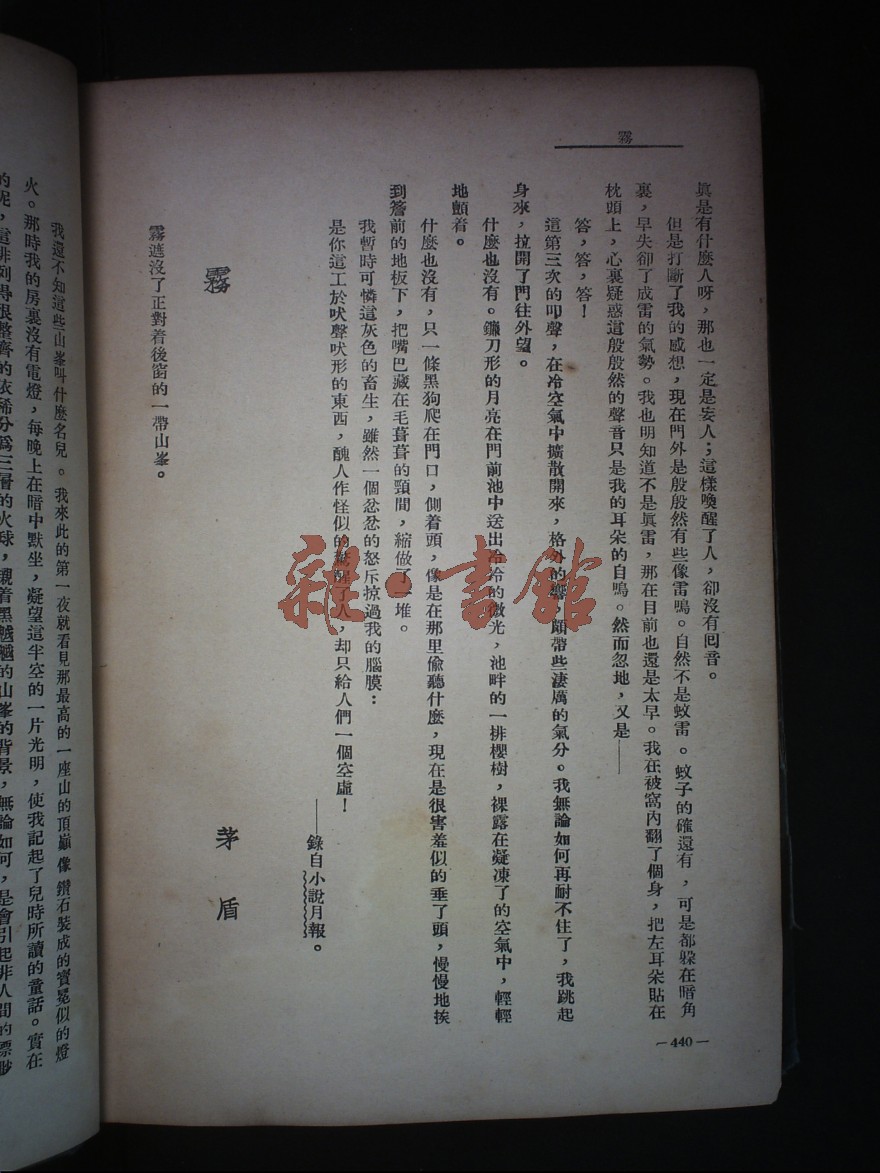 霧
眞是有什麼人呀，那也一定是妄人；這樣喚醒了人，卻沒有囘音。
但是打斷了我的感想，現在門外是殷殷然有些像雷鳴。自然不是蚊雷。蚊子的確還有，可是都躲在暗角
裏，早失卻了成雷的氣勢。我也明知道不是眞雷，那在目前也還是太早。我在被窩內翻了個身，把左耳朵貼在
枕頭上，心裏疑惑這殷殷然的聲音只是我的耳朵的自鳴。然而忽地，又是——
答，答，答！
這第三次的叩聲，在冷空氣中擴散開來，格外的響，頗帶些淒厲的氣分。我無論如何再耐不住了，我跳起
身來，拉開了門往外望。
什麼也沒有。鐮刀形的月亮在門前池中送出冷冷的微光，池畔的一排櫻樹，裸露在凝凍了的空氣中，輕輕
地顫着。
什麼也沒有，只一條黑狗爬在門口，側着頭，像是在那里偸聽什麼，現在是很害羞似的垂了頭，慢慢地挨
到簷前的地板下，把嘴巴藏在毛葺葺的頸間，縮做了一堆。
我暫時可憐這灰色的畜生，雖然一個忿忿的怒斥掠過我的腦膜：
是你這工於吠聲吠形的東西，醜人作怪似的驚醒了人，却只給人們一個空虛！
——錄自小說月報。
霧 茅盾
霧遮沒了正對着後窗的一帶山峯。
—440—
我還不知這些山峯叫什麼名兒。我來此的第一夜就看見那最高的一座山的頂巔像鑽石裝成的寶冕似的燈
火。那時我的房裏沒有電燈，每晚上在暗中默坐，凝望這半空的一片光明，使我記起了兒時所讀的童話。實在
的呢，這排列得很整齊的依稀分爲三層的火球，襯着黑魆魆的山峯的背景，無論如何，是會引起非人間的縹緲
雜·書館